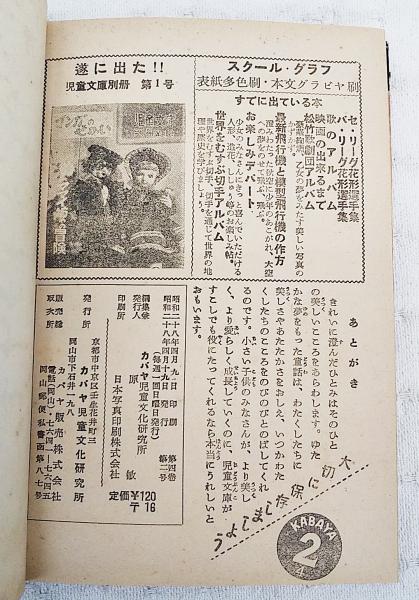 スクール・グラフ
表紙多色刷・本文グラビヤ刷
すでに出ている本
セ・リーグ花形選手集
パ・リーグ花形選手集
歌のアルバム
映画の出来るまで
松竹歌劇団アルバム
最新飛行機と模型飛行機の作方
お楽しみデパート
世界をむすぶ切手アルバム
遂に出た!!
児童文庫別冊 第1号
あとがき
きれいに澄んだひとみはそのひと
の美しいこころをあらわします。ゆた
かな夢をもった童話は、わたくしたちに
美しさやあたたかさをおしえ、いつかわた
くしたちのこころをのびのびとのばしてくれ
るのです。小さい子供のみなさんが、より美し
く、より愛らしく成長していくのに、児童文庫が
すこしでも役にたってくれるなら本当にうれしいと
おもいます。
大切に保存しましょう
KABAYA
2
昭和二十八年四月十九日印刷
第四巻
第二号
編集兼発行人 原敏
カバヤ児童文化研究所
印刷所 日本写真印刷株式会社
定価¥120
〒16
発行所 京都市中京区壬生花井町三
カバヤ児童文化研究所
岡山市下石井一九八
カバヤ販売株式会社
電話(岡山)・七六四一—七六四五
岡山郵便私書函第八七号